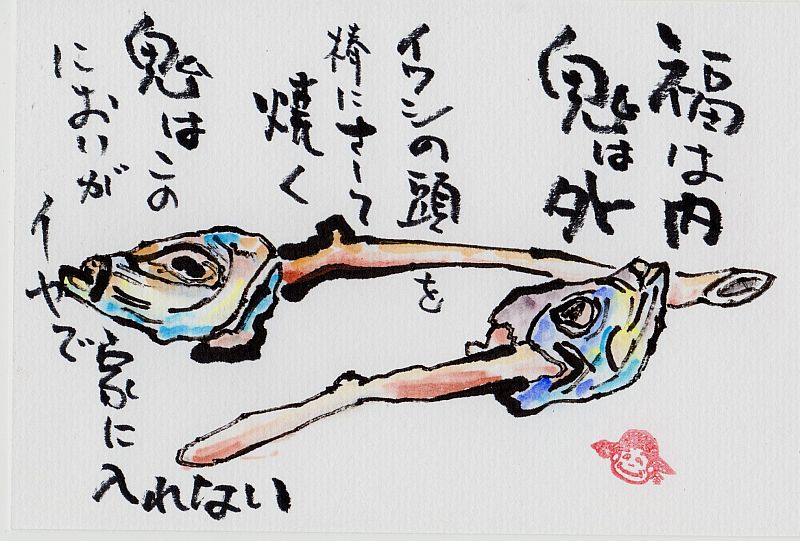 福は内
鬼は外
イワシの頭を
棒にさして
焼く
鬼はこの
においが
イヤで
家に
入れない